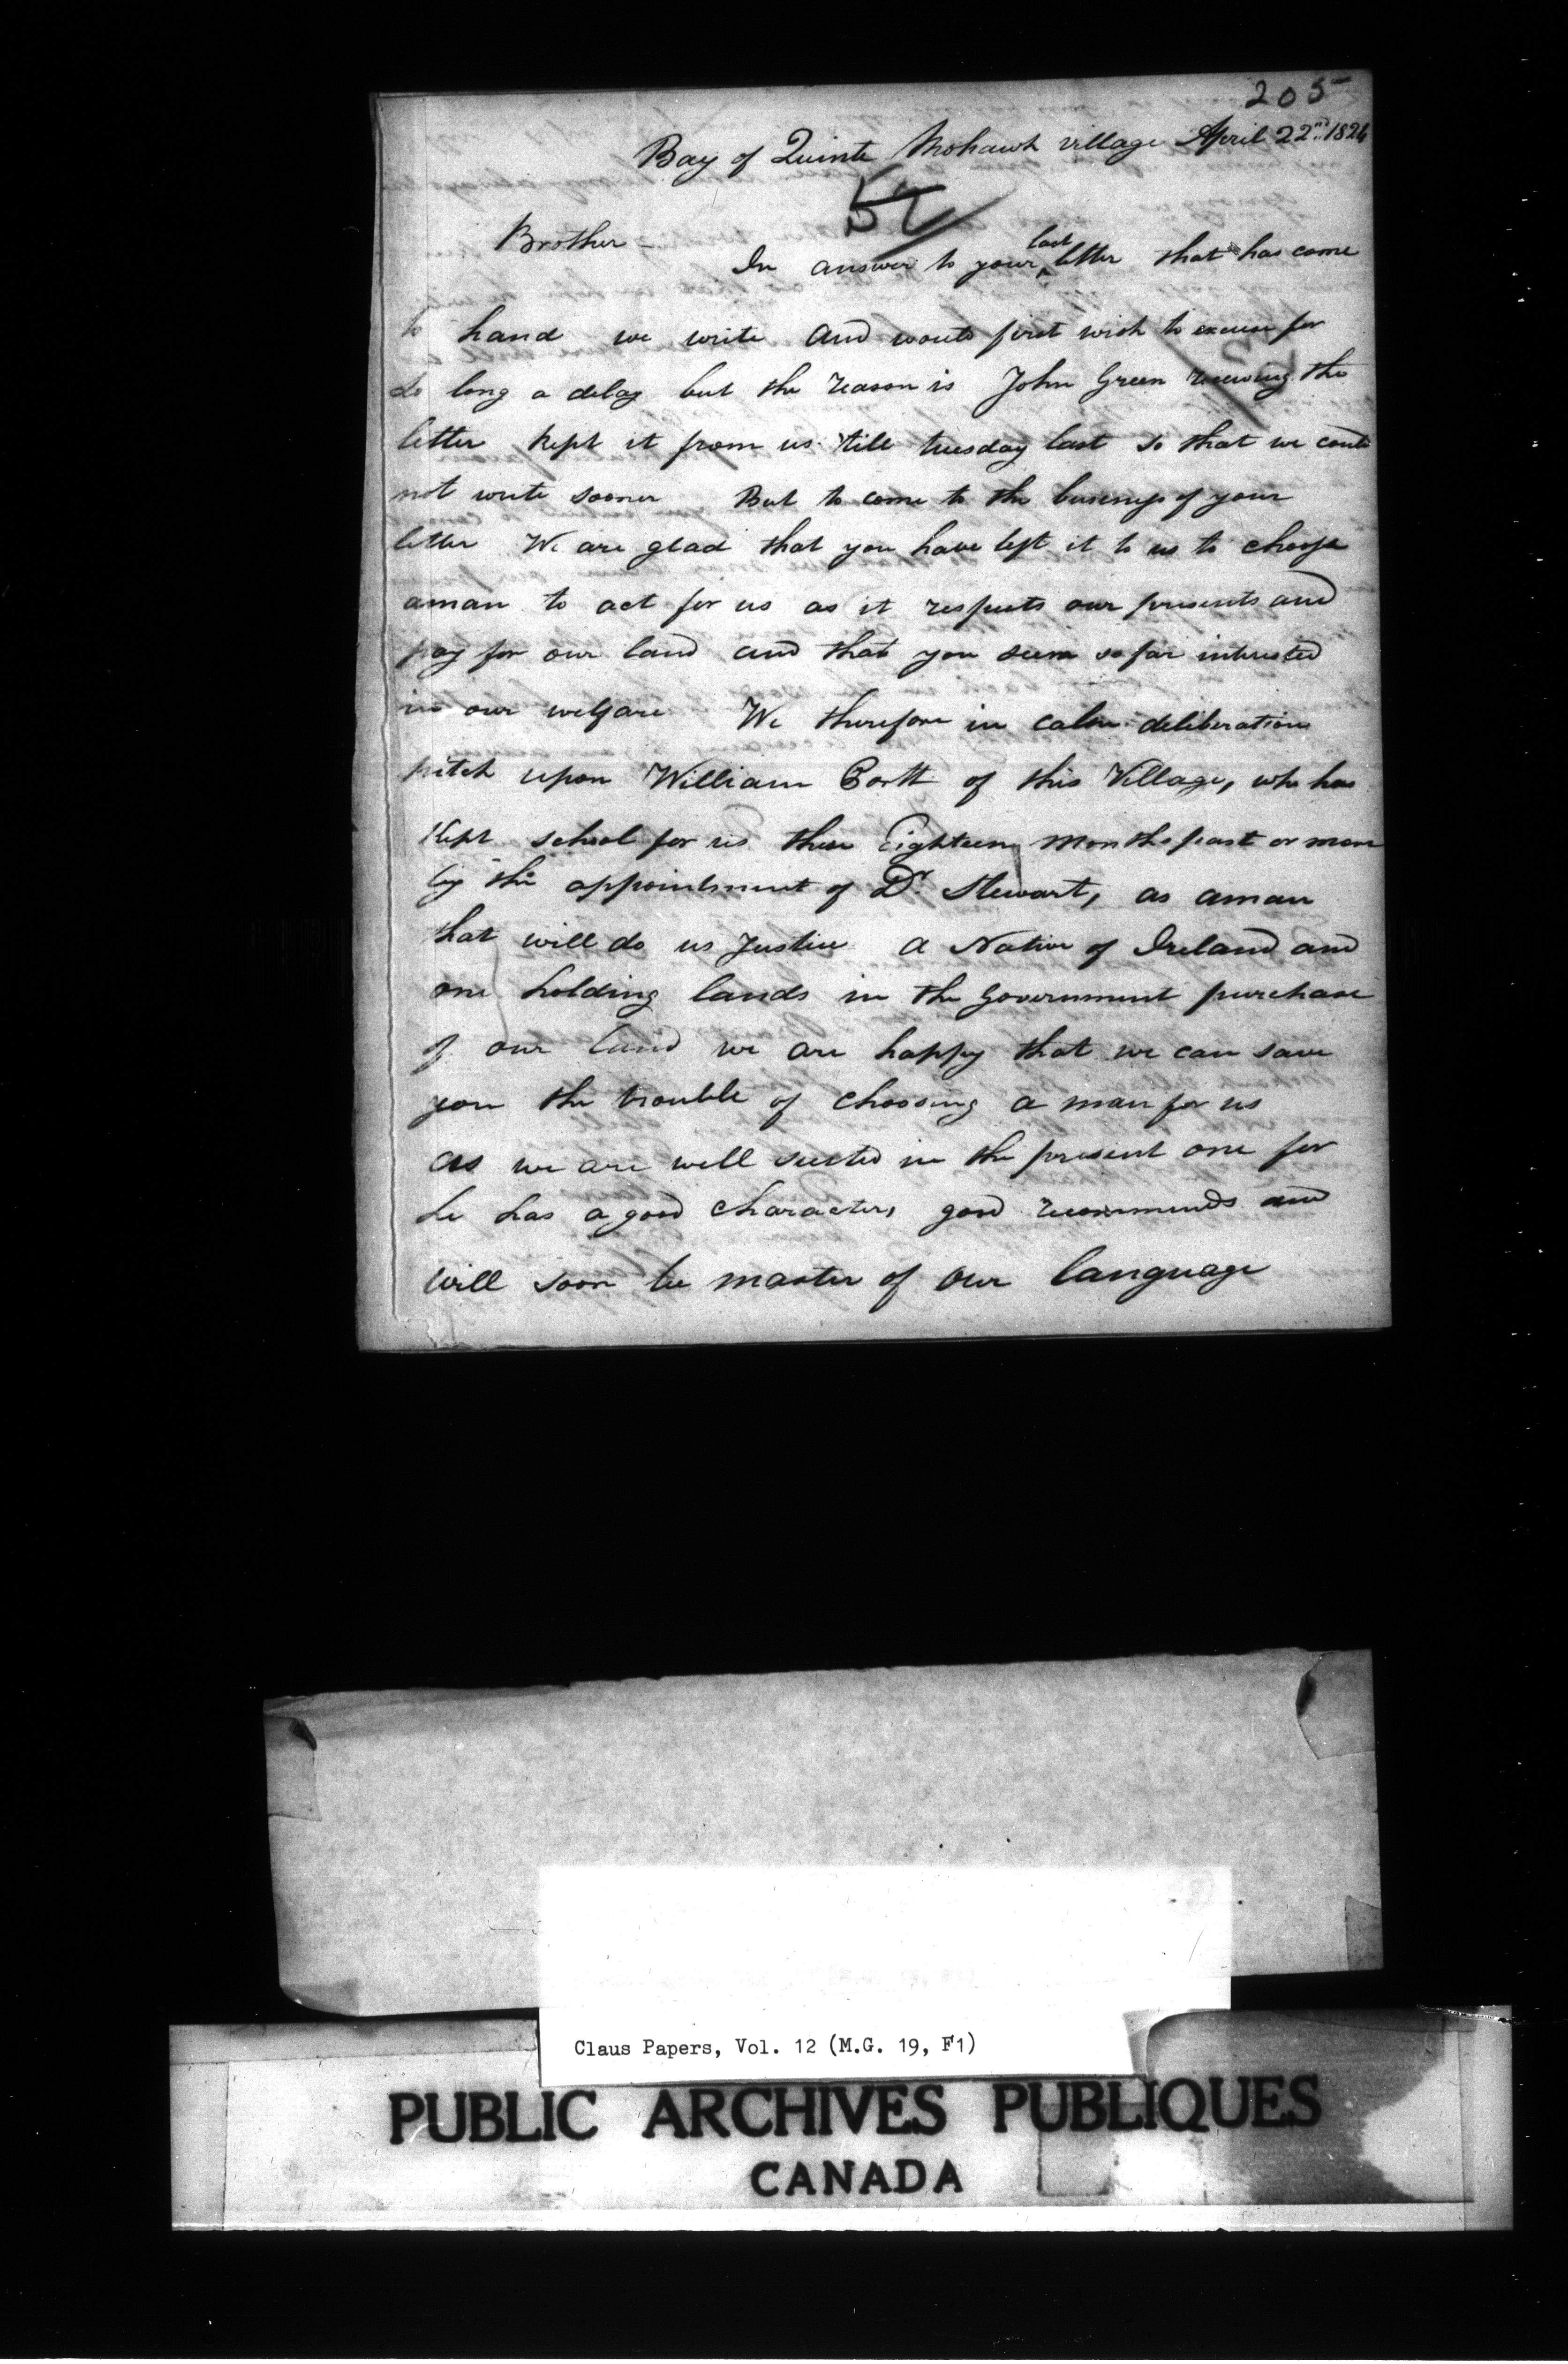 205
Bay of Quinte Mohawk village April 22nd 182
57
Brother –
In answer to your last letter that has come
to hand we write and would first wish to excuse for
so long a delay but the reason is John Green receiving the
letter kept it from us till tuesday last so that we could
not write sooner But to come to the business of your
letter We are glad that you have left it to us to choose
aman to act for us as it respects our presents and
pay for our land and that you seem so far interested
in our welfare We therefore in calm deliberation
pitch upon William Portt of this Village, who has
kept school for us these Eighteen months past or more
by the appointment of Dr. Stewart, as aman
that will do us Justice a Native of Ireland and
one holding lands in the Government purchase
of our land we are happy that we can save
you the trouble of choosing a man for us
as we are well suited in the present one for
he has a good character, good recommends and
will soon be master of our language
Claus Papers, Vol. 12 (M.G. 19, F1)
PUBLIC ARCHIVES PUBLIQUES
CANADA